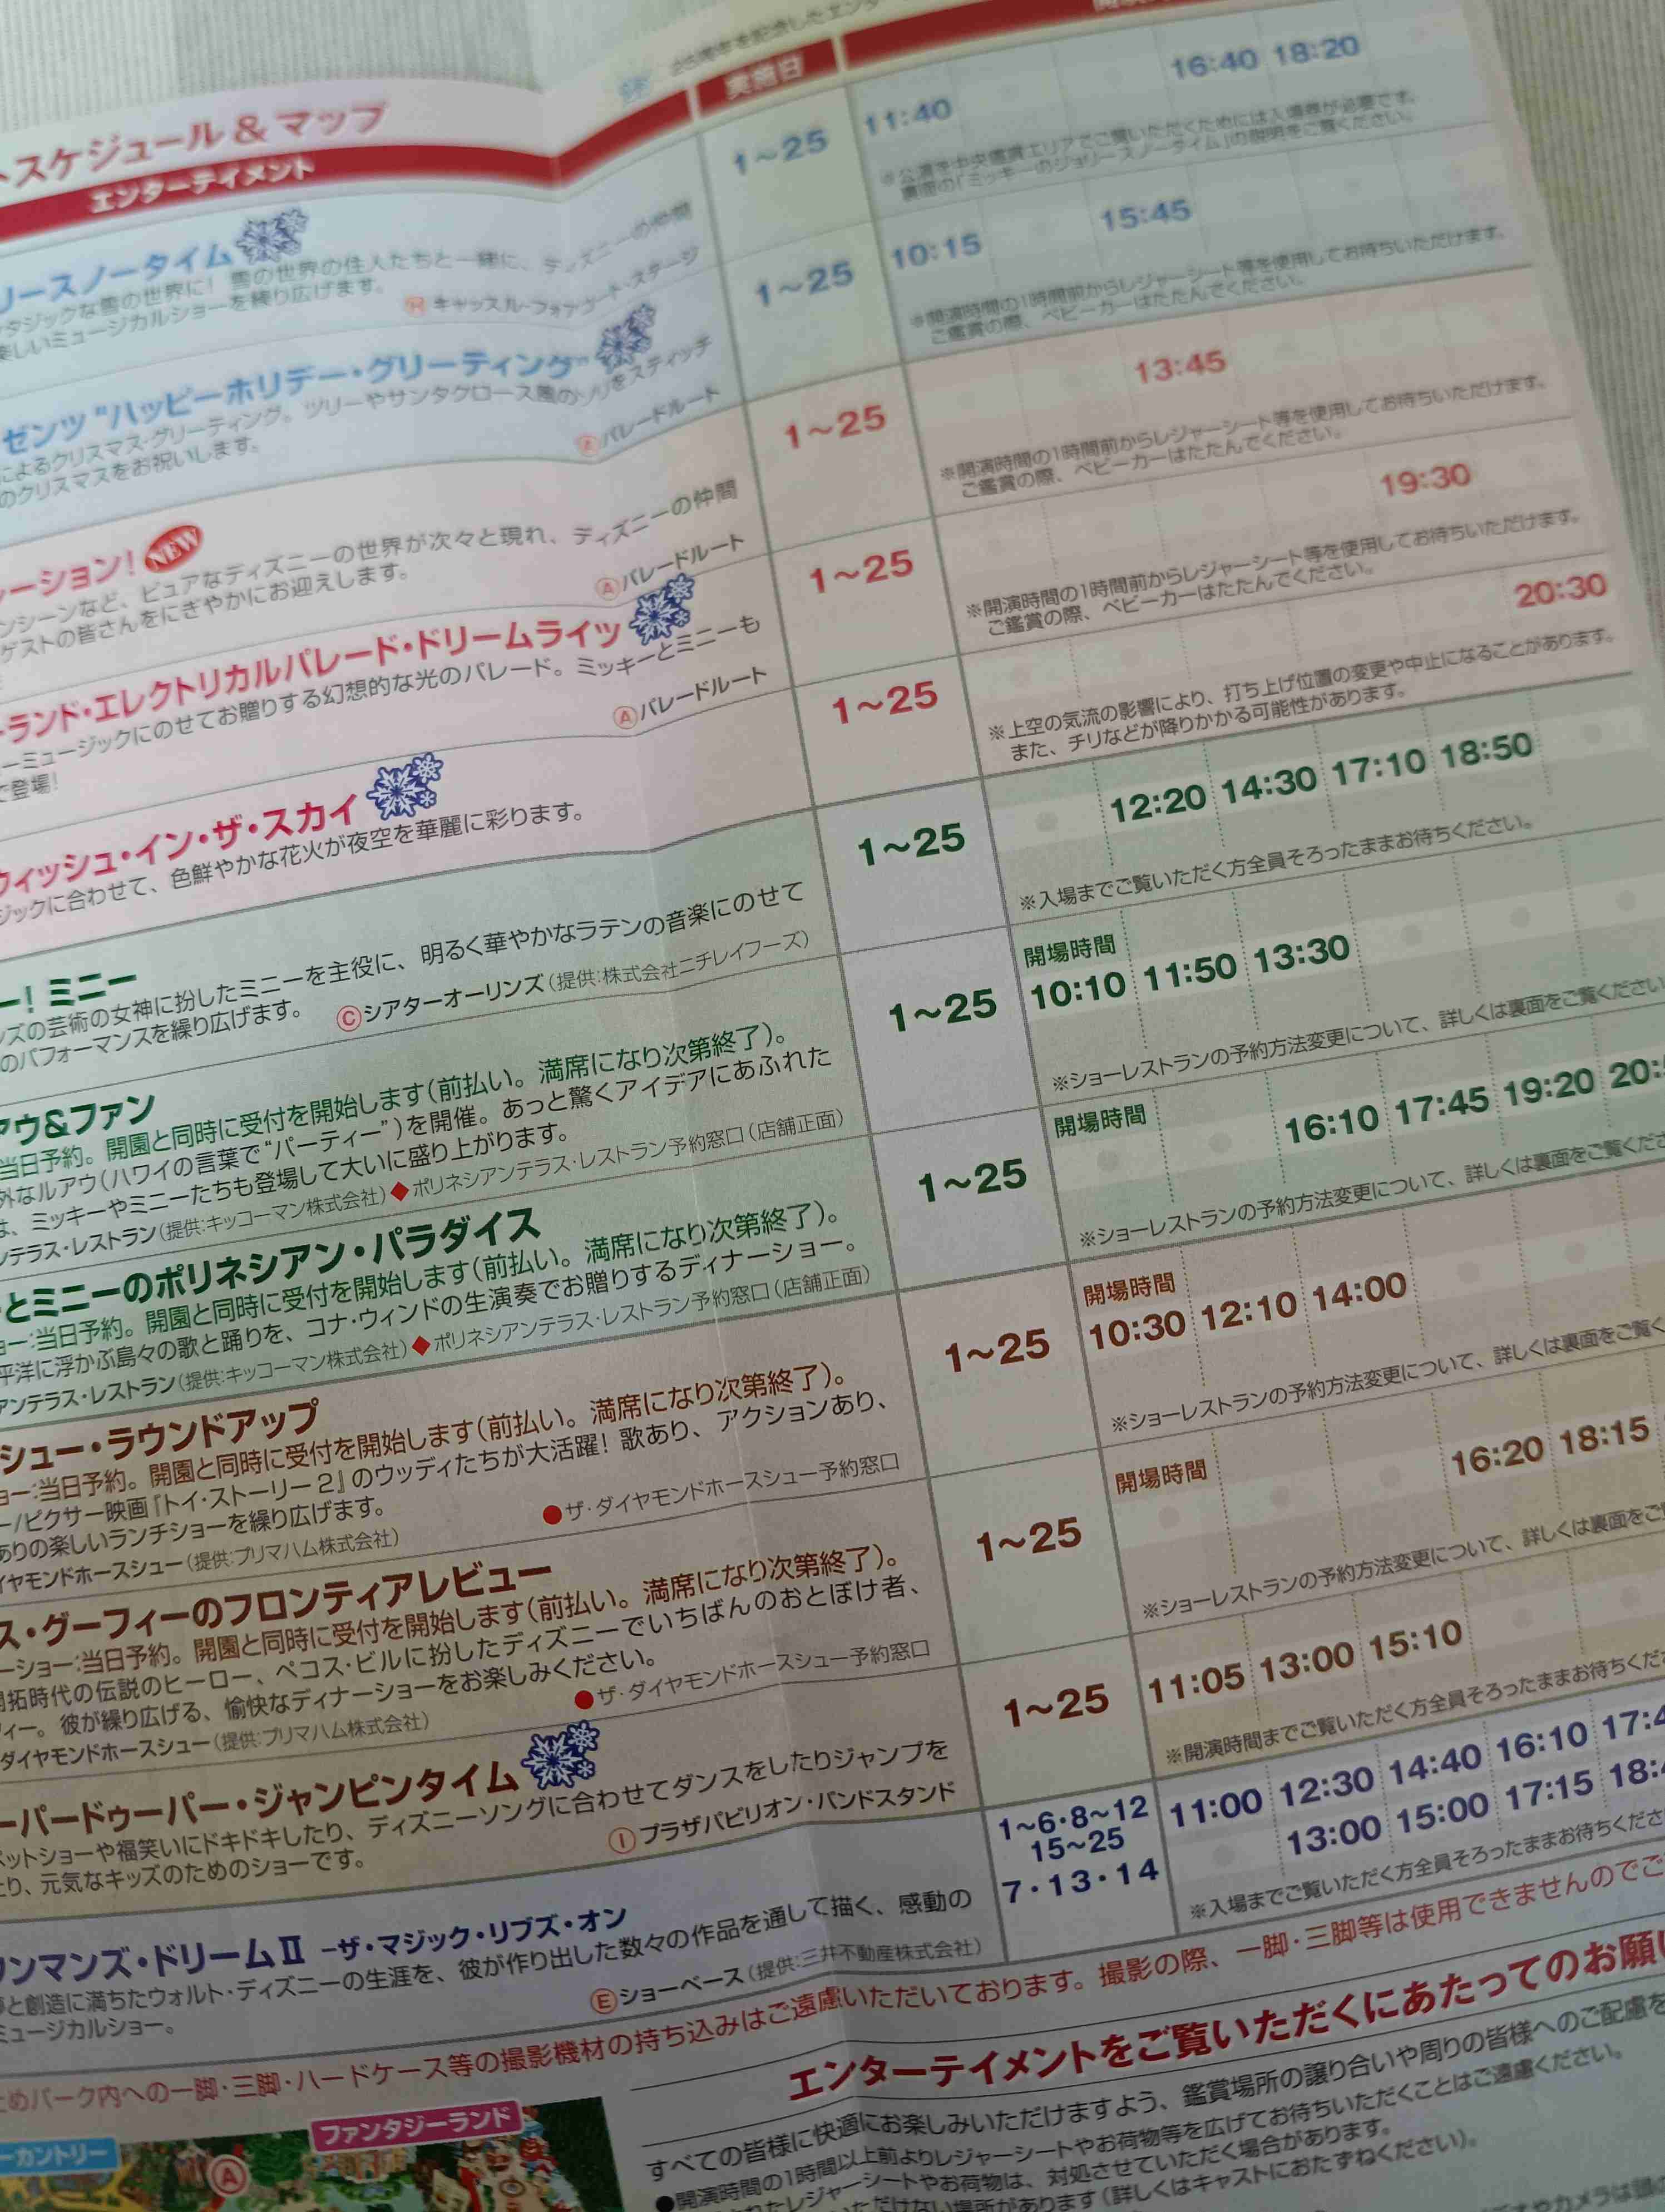 スケジュール&マップ
25周年を記念したエンター
エンターテイメント
実施日
リースノータイム
タジックな雪の世界に！ 雪の世界の住人たちと一緒に、ディズニーの仲間
楽しいミュージカルショーを繰り広げます。
Ⓗキャッスル・フォアコート・ステージ
1～25
11:40 16:40 18:20
※公演を中央鑑賞エリアでご覧いただくためには入場券が必要です。
裏面の「ミッキーのジョリースノータイム」の説明をご覧ください。
ゼンツ“ハッピーホリデー・グリーティング”
によるクリスマス・グリーティング。ツリーやサンタクロース風のソリをスティッチ
のクリスマスをお祝いします。
Ⓐパレードルート
1～25
10:15 15:45
※開演時間の1時間前からレジャーシート等を使用してお待ちいただけます。
ご鑑賞の際、ベビーカーはたたんでください。
ーション！ NEW
ンシーンなど、ピュアなディズニーの世界が次々と現れ、ディズニーの仲間
ゲストの皆さんをにぎやかにお迎えします。
Ⓐパレードルート
1～25
13:45
※開演時間の1時間前からレジャーシート等を使用してお待ちいただけます。
ご鑑賞の際、ベビーカーはたたんでください。
ーランド・エレクトリカルパレード・ドリームライツ
ーミュージックにのせてお贈りする幻想的な光のパレード。ミッキーとミニーも
で登場！
Ⓐパレードルート
1～25
19:30
※開演時間の1時間前からレジャーシート等を使用してお待ちいただけます。
ご鑑賞の際、ベビーカーはたたんでください。
ウィッシュ・イン・ザ・スカイ
ジックに合わせて、色鮮やかな花火が夜空を華麗に彩ります。
1～25
20:30
※上空の気流の影響により、打ち上げ位置の変更や中止になることがあります。
また、チリなどが降りかかる可能性があります。
ー！ミニー
ンズの芸術の女神に扮したミニーを主役に、明るく華やかなラテンの音楽にのせて
のパフォーマンスを繰り広げます。
Ⓒシアターオーリンズ（提供：株式会社ニチレイフーズ）
1～25
12:20 14:30 17:10 18:50
※入場までご覧いただく方全員そろったままお待ちください。
アウ&ファン
当日予約。開園と同時に受付を開始します（前払い。満席になり次第終了）。
外なルアウ（ハワイの言葉で“パーティー”）を開催。あっと驚くアイデアにあふれた
は、ミッキーやミニーたちも登場して大いに盛り上がります。
ンテラス・レストラン（提供：キッコーマン株式会社）◆ポリネシアンテラス・レストラン予約窓口（店舗正面）
1～25
開場時間
10:10 11:50 13:30
※ショーレストランの予約方法変更について、詳しくは裏面をご覧ください
ーとミニーのポリネシアン・パラダイス
ョー：当日予約。開園と同時に受付を開始します（前払い。満席になり次第終了）。
平洋に浮かぶ島々の歌と踊りを、コナ・ウィンドの生演奏でお贈りするディナーショー。
アンテラス・レストラン（提供：キッコーマン株式会社）◆ポリネシアンテラス・レストラン予約窓口（店舗正面）
1～25
開場時間
16:10 17:45 19:20 20:
※ショーレストランの予約方法変更について、詳しくは裏面をご覧くださ
シュー・ラウンドアップ
ョー：当日予約。開園と同時に受付を開始します（前払い。満席になり次第終了）。
ー/ピクサー映画『トイ・ストーリー2』のウッディたちが大活躍！歌あり、アクションあり、
ありの楽しいランチショーを繰り広げます。
イヤモンドホースシュー（提供：プリマハム株式会社）
●ザ・ダイヤモンドホースシュー予約窓口
1～25
開場時間
10:30 12:10 14:00
※ショーレストランの予約方法変更について、詳しくは裏面をご覧く
ス・グーフィーのフロンティアレビュー
ーショー：当日予約。開園と同時に受付を開始します（前払い。満席になり次第終了）。
開拓時代の伝説のヒーロー、ペコス・ビルに扮したディズニーでいちばんのおとぼけ者、
ィー。彼が繰り広げる、愉快なディナーショーをお楽しみください。
ダイヤモンドホースシュー（提供：プリマハム株式会社）
●ザ・ダイヤモンドホースシュー予約窓口
1～25
開場時間
16:20 18:15
※ショーレストランの予約方法変更について、詳しくは裏面をご
ーパードゥーパー・ジャンピンタイム
ペットショーや福笑いにドキドキしたり、ディズニーソングに合わせてダンスをしたりジャンプを
たり、元気なキッズのためのショーです。
Ⓘプラザパビリオン・バンドスタンド
1～25
11:05 13:00 15:10
※開演時間までご覧いただく方全員そろったままお待ちくだ
ワンマンズ・ドリームⅡ －ザ・マジック・リブズ・オン
夢と創造に満ちたウォルト・ディズニーの生涯を、彼が作り出した数々の作品を通して描く、感動の
ミュージカルショー。
Ⓔショーベース（提供：三井不動産株式会社）
1～6・8～12
15～25
11:00 12:30 14:40 16:10 17:4
7・13・14
13:00 15:00 17:15 18:
※入場までご覧いただく方全員そろったままお待ちくださ
ためパーク内への一脚・三脚・ハードケース等の撮影機材の持ち込みはご遠慮いただいております。撮影の際、一脚・三脚等は使用できませんのでご
エンターテイメントをご覧いただくにあたってのお願い
すべての皆様に快適にお楽しみいただけますよう、鑑賞場所の譲り合いや周りの皆様へのご配慮を
●開演時間の1時間以上前よりレジャーシートやお荷物等を広げてお待ちいただくことはご遠慮ください。
れたレジャーシートやお荷物は、対処させていただく場合があります。
ただけない場所があります（詳しくはキャストにおたずねください）。
やカメラは頭
ファンタジーランド
ーカントリー
Ⓐ